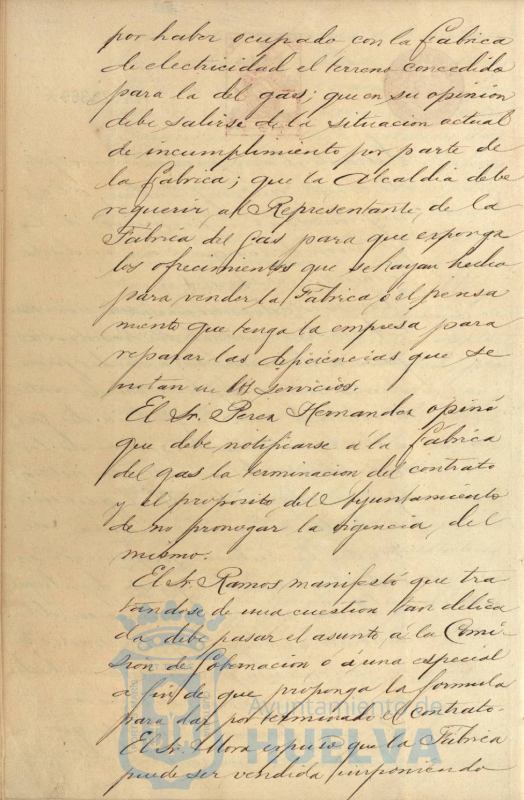 por haber ocupado con la fabrica
de electricidad el terreno concedido
para la del gas; que en su opinión
debe salirse de la situacion actual
de incumplimiento por parte de
la fabrica; que la Alcaldia debe
requerir al Representante de la
Fabrica del Gas para que exponga
los ofrecimientos que se hayan hecho
para vender la Fabrica, ó el pensa
miento que tenga la empresa para
reparar las deficiencias que se
notan en los servicios.
El Sr. Perez Hernandez opinó
que debe notificarse á la fabrica
del gas la terminacion del contrato
y el propósito del Ayuntamiento
de no prorrogar la vigencia del
mismo.
El Sr. Ramos manifestó que tra
tandose de una cuestion tan delica
da debe pasar el asunto á la Comi-
sion de Gobernacion o á una especial
a fin de que proponga la formula
para dar por terminado el contrato.
El Sr. Mora expuso que la Fabrica
puede ser vendida imponiendo
Ayuntamiento de
HUELVA